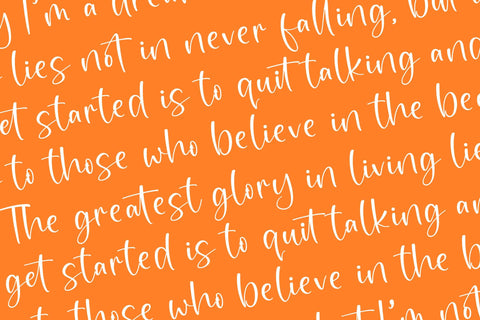 I'm a
lies not in never falling, but
get started is to quit talking and
to those who believe in the be
The greatest glory in living lie
get started is to quit talking a
those who believe in the b
I'm not